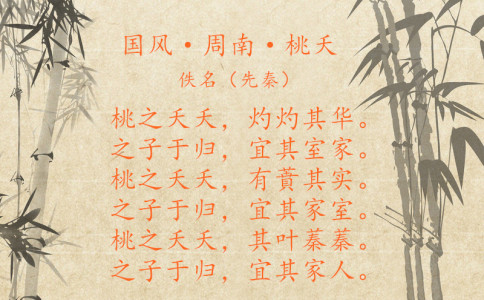 国风·周南·桃夭
佚名（先秦）
桃之夭夭，灼灼其华。
之子于归，宜其室家。
桃之夭夭，有蕡其实。
之子于归，宜其家室。
桃之夭夭，其叶蓁蓁。
之子于归，宜其家人。